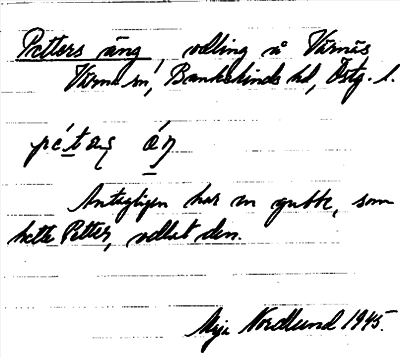 Petters äng, odling å Värnäs
Värna sn, Bankekinds hd, Östg. l.
Antagligen har en gubbe, som
hette Petter, odlat den.
Maja Nordlund 1945.